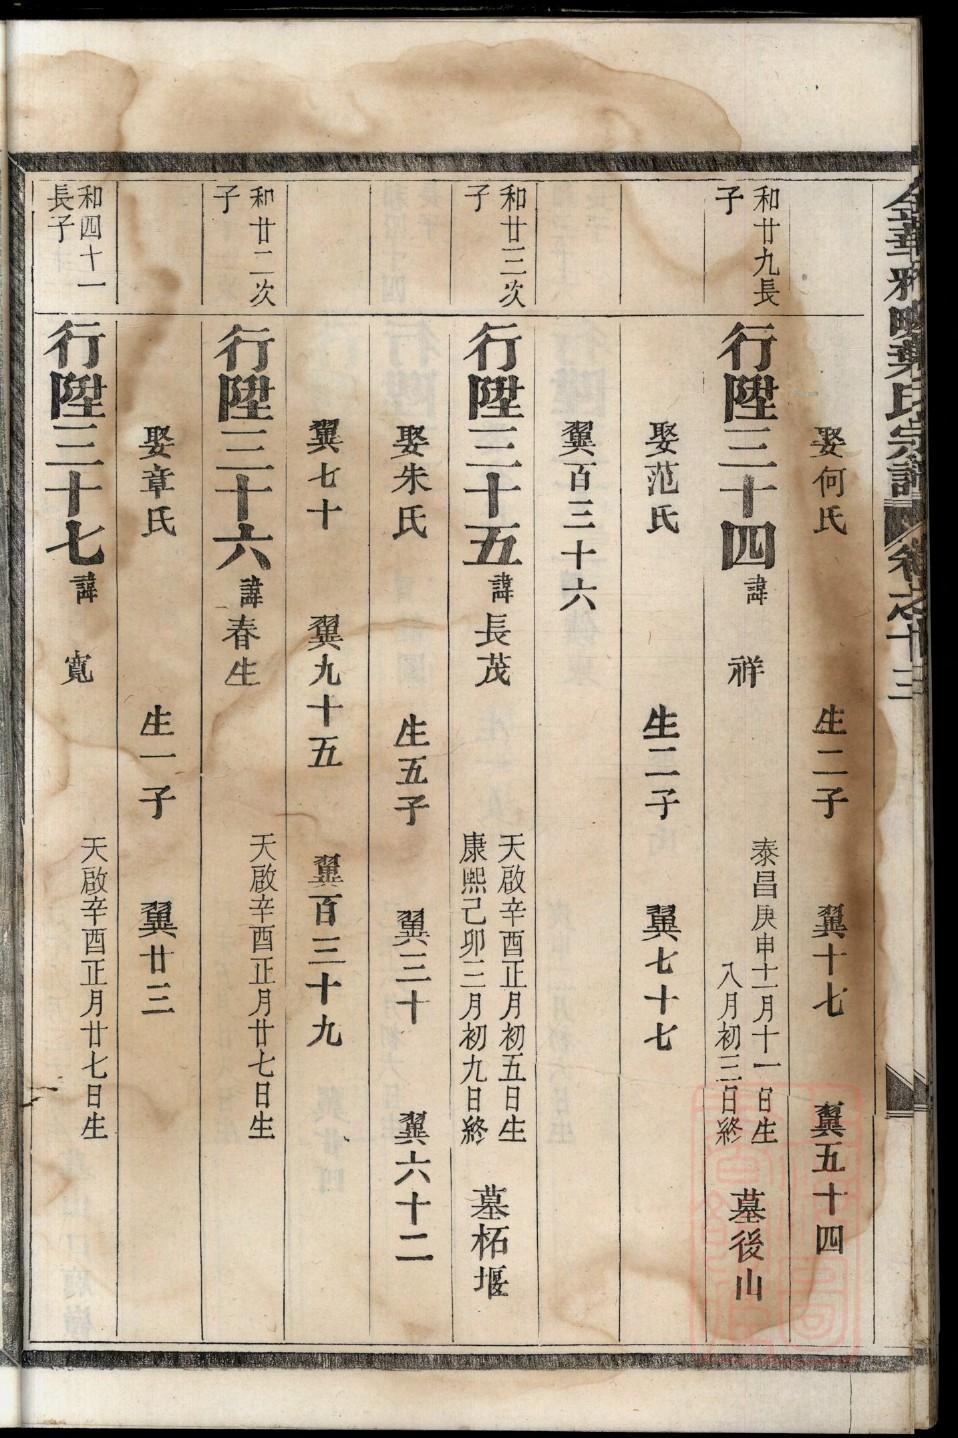 金華雅畈葉氏宗譜 卷之十三
娶何氏 生二子 翼十七 翼五十四
和廿九長子
行陞三十四 諱祥 泰昌庚申十一月十一日生 八月初三日終 墓後山
娶范氏 生二子 翼七十七
翼百三十六
和廿三次子
行陞三十五 諱長茂 天啟辛酉正月初五日生 康熙己卯三月初九日終 墓柘堰
娶朱氏 生五子 翼三十 翼六十二
翼七十 翼九十五 翼百三十九
和廿二次子
行陞三十六 諱春生 天啟辛酉正月廿七日生
娶章氏 生一子 翼廿三
和四十一長子
行陞三十七 諱寬 天啟辛酉正月廿七日生